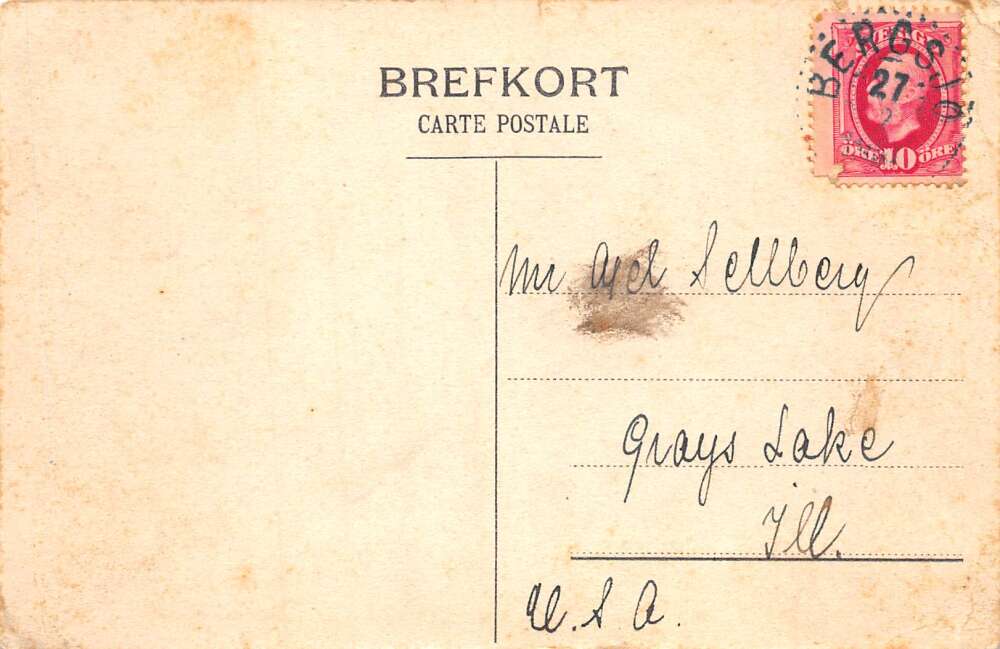 BREFKORT
CARTE POSTALE
BERGSJÖ
27
2
SVERGE
ÖRE 10 ÖRE
Mr Axel Sellberg
Grays Lake
Ill.
U.S.A.